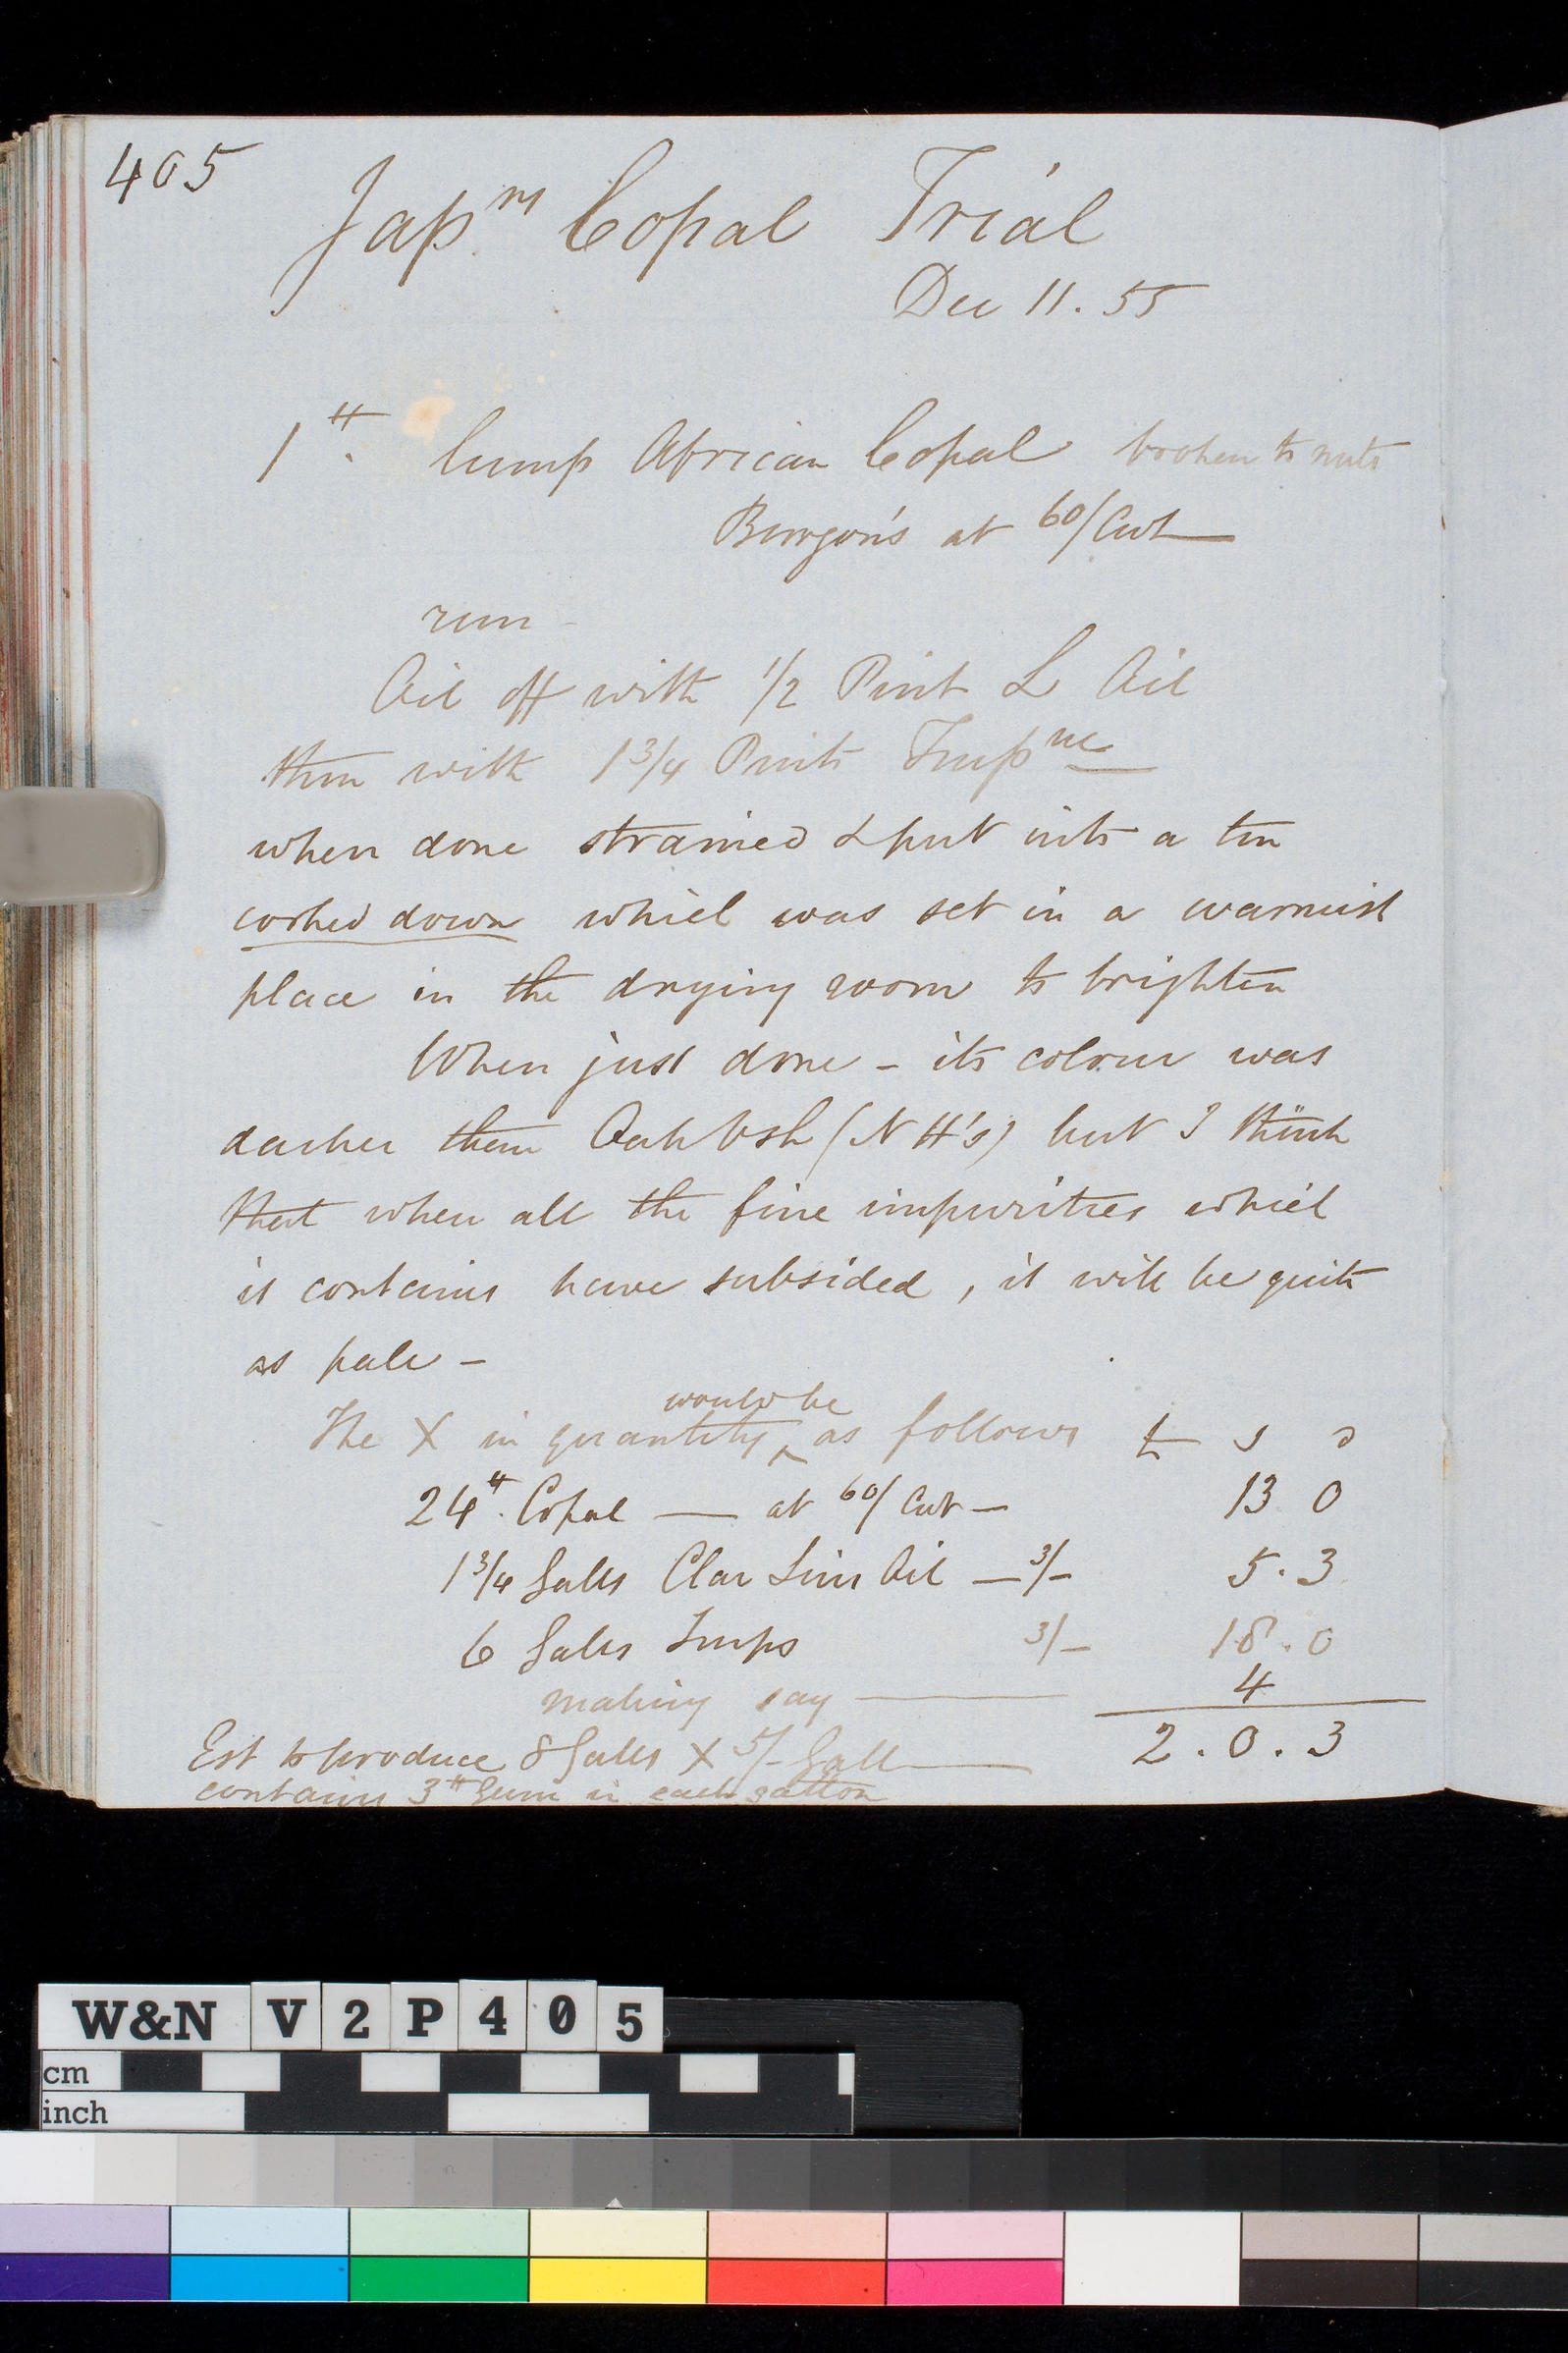 405
Japⁿˢ Copal Trial
Dec 11. 55
1 ℔. lump African Copal broken to nuts
Burgon's at 60/ Cwt
run -
Oil off with 1/2 Pint L Oil
then with 1 3/4 Pints Turpⁿᵉ
when done strained & put into a tin
corked down which was set in a warmish
place in the drying room to brighten
When just done - its colour was
darker than Oak Vsh (N H's) but I think
that when all the fine impurities which
it contains have subsided, it will be quite
as pale -
The X in quantity would be as follows £ s d
24 ℔. Copal — at 60/ Cwt — 13 0
1 3/4 Galls Clar Lin Oil — 3/- 5.3
6 Galls Turps 3/- 18.0
making say — 4
2.0.3
Est to produce 8 Galls X 5/- Gall
contains 3 ℔ Gum in each gallon
W&N V2P405
cm
inch